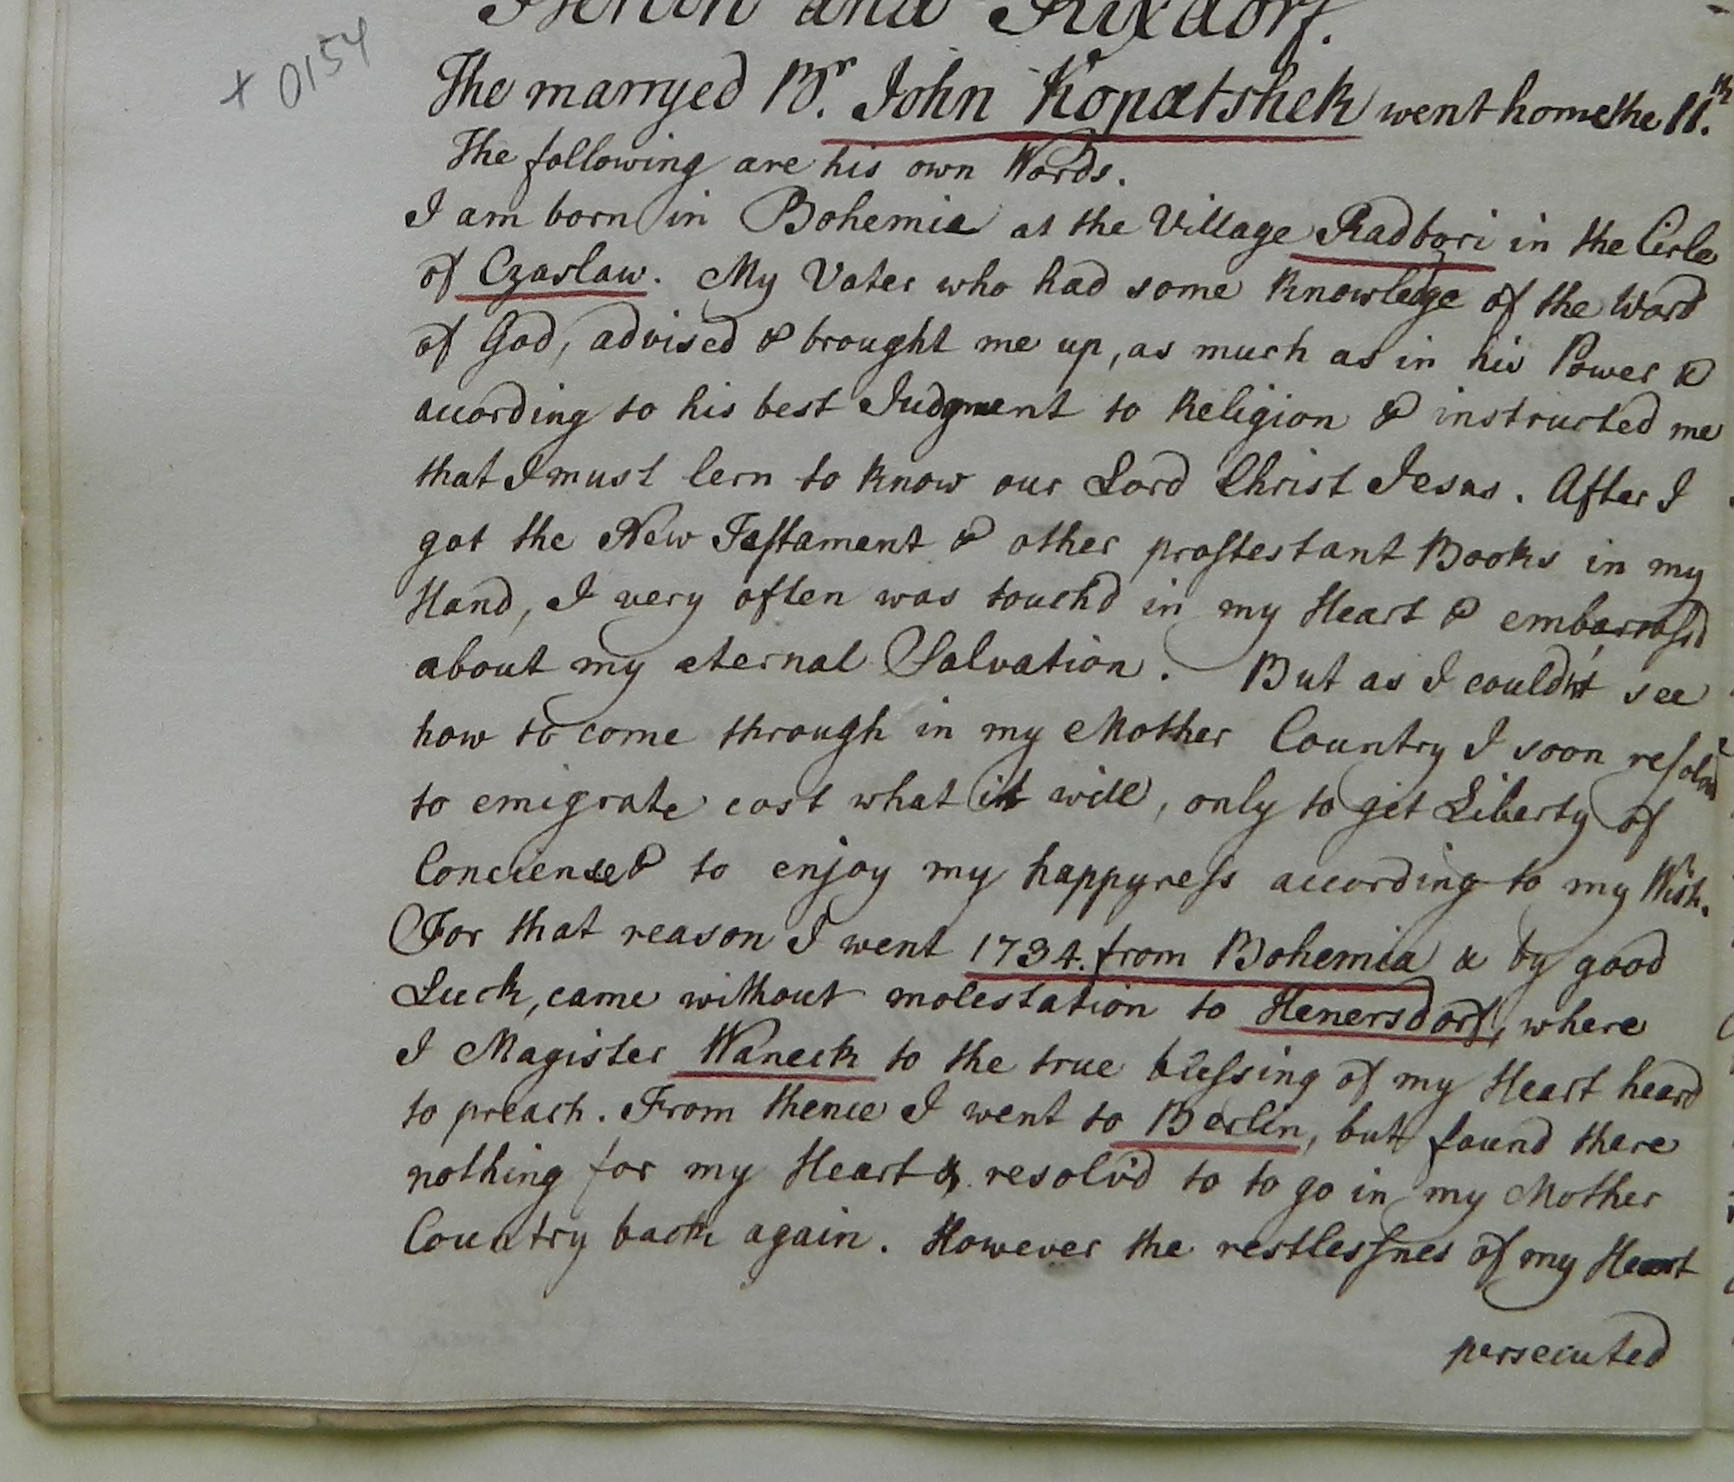 Berlin and Rixdorf.
+ 0154
The marryed Br. John Kopatshek went home the 11.th
The following are his own Words.
I am born in Bohemia at the Village Radbori in the Cirle
of Czaslaw. My Vater who had some Knowlege of the Word
of God, advised & brought me up, as much as in his Power &
acording to his best Judgment to Religion & instructed me
that I must lern to know our Lord Christ Jesus. After I
got the New Testament & other prostestant Books in my
Hand, I very often was touch'd in my Heart & embarrass'd
about my eternal Salvation. But as I couldn't see
how to come through in my Mother Country I soon resolv'd
to emigrate cost what it will, only to get Liberty of
Concience & to enjoy my happyness according to my Wish.
For that reason I went 1734. from Bohemia & by good
Luck, came without molestation to Henersdorf, where
I Magister Waneck to the true blessing of my Heart heard
to preach. From thence I went to Berlin, but found there
nothing for my Heart &, resolv'd to to go in my Mother
Country back again. However the restlessnes of my Heart
persecuted